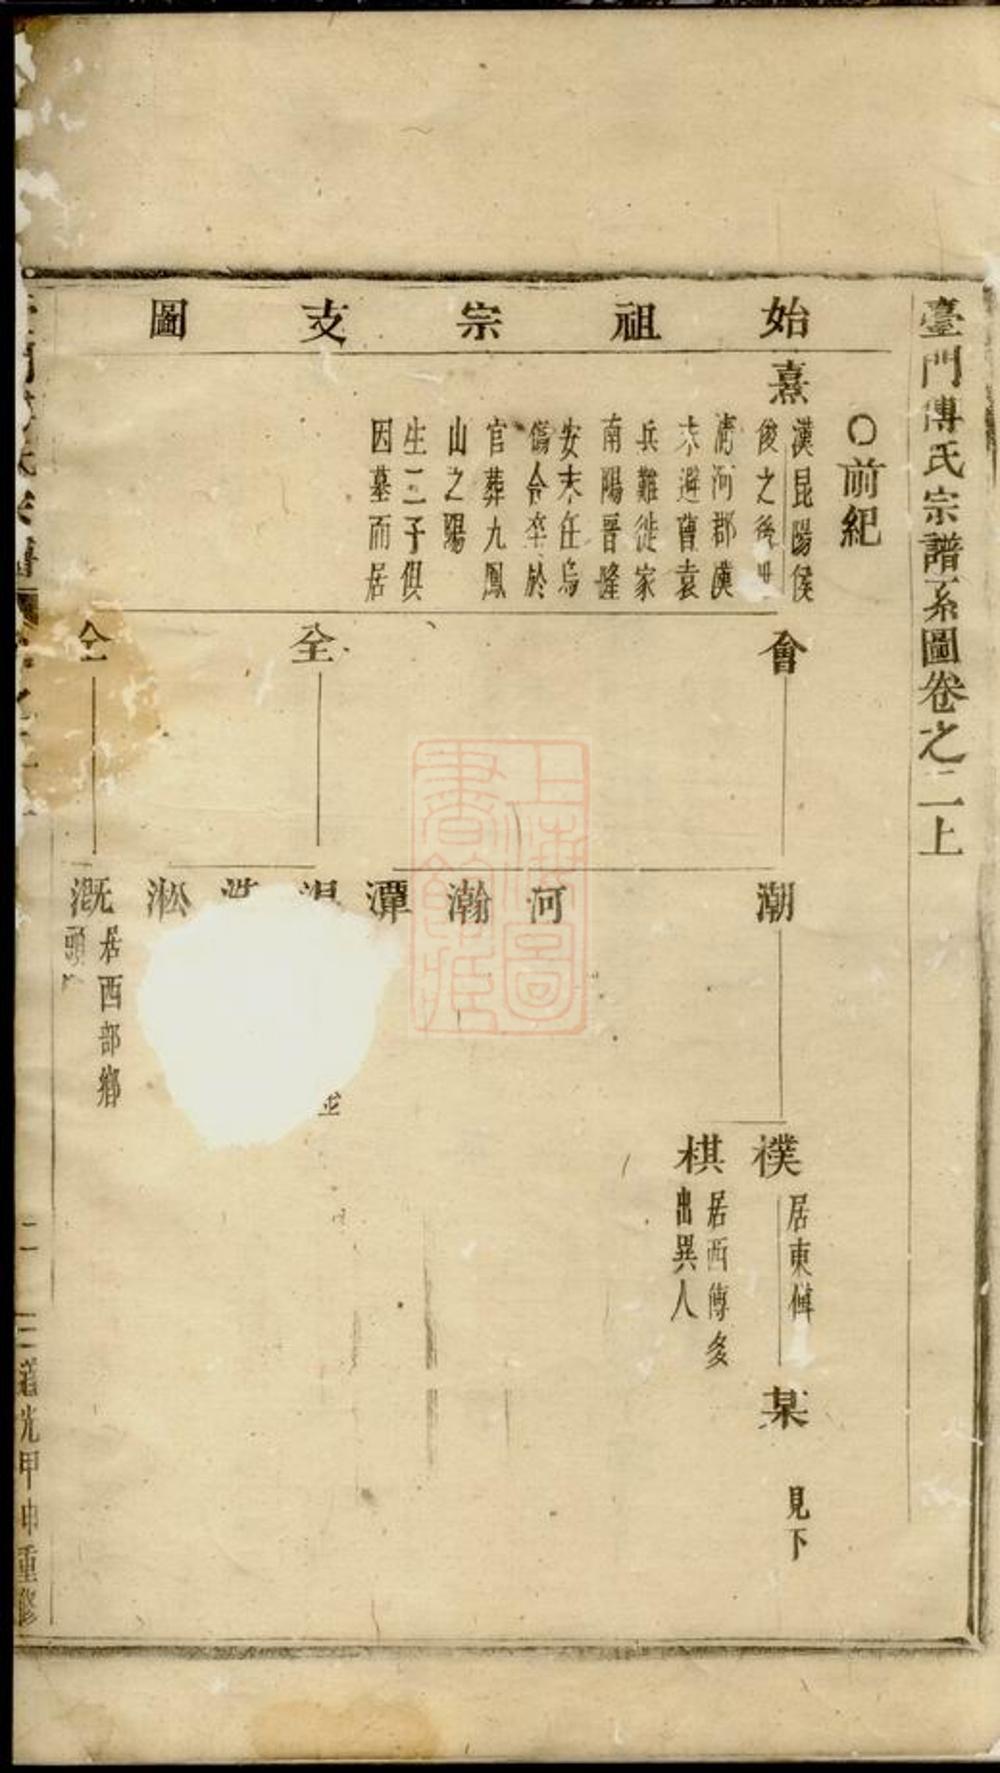 臺門傅氏宗譜系圖卷之二上
〇前紀
始祖宗支圖
熹
漢昆陽侯
俊之後世
清河郡漢
末避曹袁
兵難徙家
南陽晉隆
安末任烏
傷令卒於
官葬九鳳
山之陽
生三子俱
因墓而居
會
全
仝
潮
河
瀚
潭
淞
溉
居西部鄉
頭
樸
居東
棋
居西傳多
出異人
某
見下
上海圖書館藏
二
道光甲申重修